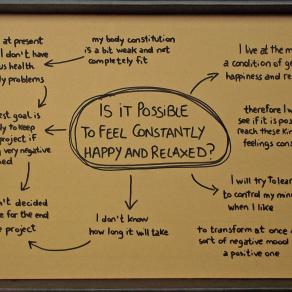 at present
I don't have
health
problems
my body constitution
is a bit weak and not
completely fit
I live at the m
a condition of ge
happiness and re
IS IT POSSIBLE
TO FEEL CONSTANTLY
HAPPY AND RELAXED?
est goal is
ly to keep
project if
very negative
therefore I w
see if it is pos
reach these kin
feelings cons
I will try to lear
to control my min
when I like
decided
e for the end
project
I don't know
how long it will take
to transform at once a
sort of negative mood
a positive one